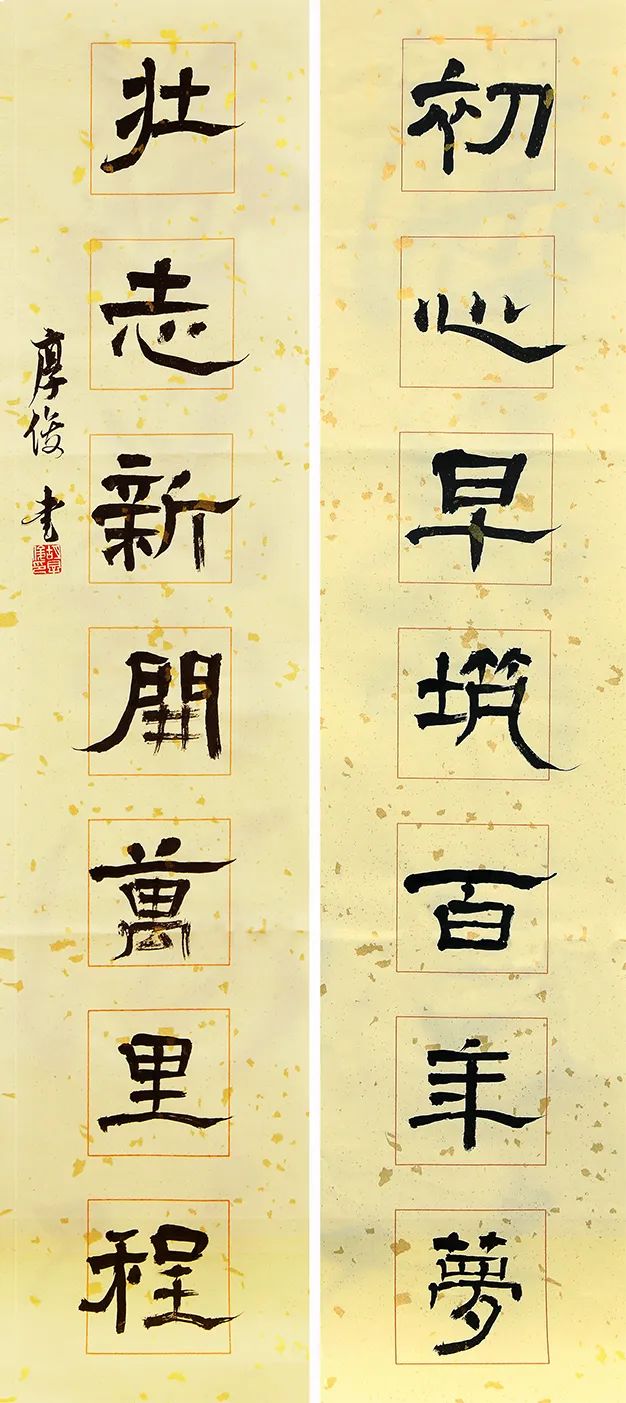 初心早筑百年夢
壯志新開萬里程
厚俊書